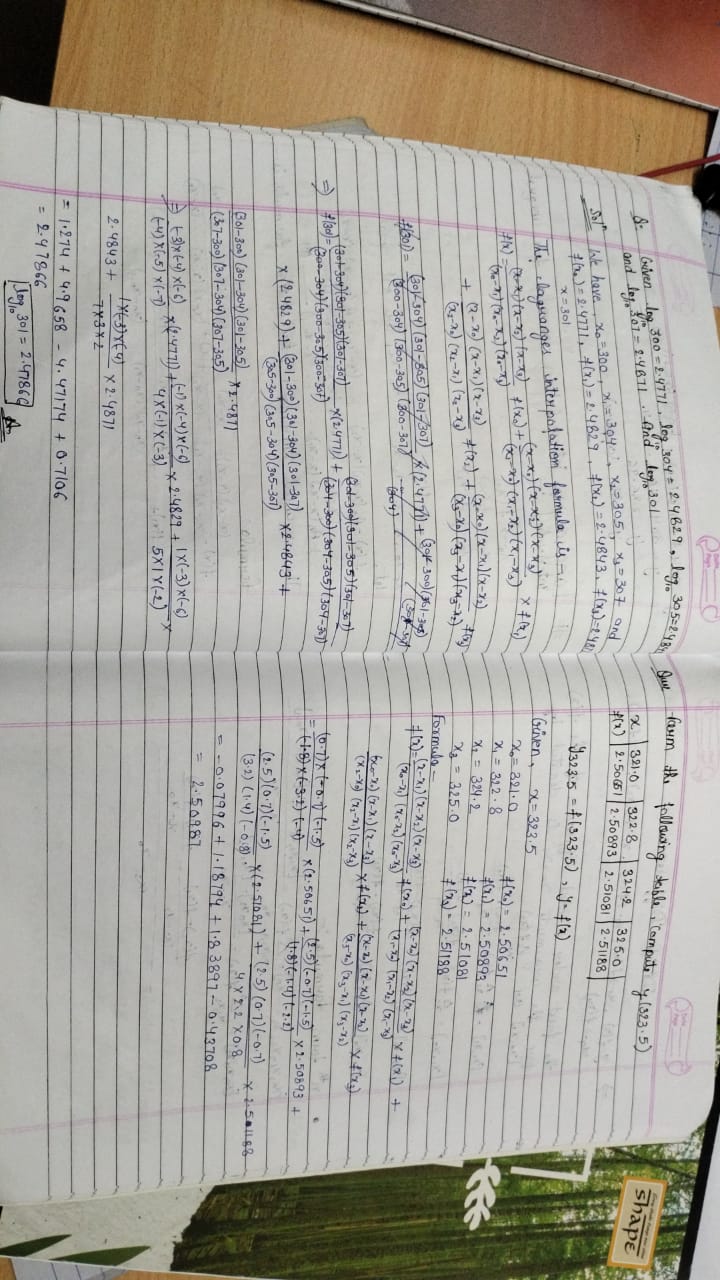 Q- Given log₁₀ 300 = 2.4771, log₁₀ 304 = 2.4829, log₁₀ 305 = 2.484
and log₁₀ 307 = 2.4871. And log₁₀ 301
Solⁿ We have, x₀=300, x₁=304, x₂=305, x₃=307 and
f(x₀) = 2.4771, f(x₁) = 2.4829, f(x₂) = 2.4843, f(x₃)=2.487
x=301
The lagranges interpolation formula is -
f(x) = (x-x₁)(x-x₂)(x-x₃)/(x₀-x₁)(x₀-x₂)(x₀-x₃) f(x₀) + (x-x₀)(x-x₂)(x-x₃)/(x₁-x₀)(x₁-x₂)(x₁-x₃) × f(x₁)
+ (x-x₀)(x-x₁)(x-x₃)/(x₂-x₀)(x₂-x₁)(x₂-x₃) f(x₂) + (x-x₀)(x-x₁)(x-x₂)/(x₃-x₀)(x₃-x₁)(x₃-x₂) f(x₃)
f(301) = (301-304)(301-305)(301-307)/(300-304)(300-305)(300-307) ×(2.4771) + (301-300)(301-305)/(304)
⇒ f(301) = (301-304)(301-305)(301-307)/(300-304)(300-305)(300-307) ×(2.4771) + (301-300)(301-305)(301-307)/(304-300)(304-305)(304-307)
×(2.4829) + (301-300)(301-304)(301-307)/(305-300)(305-304)(305-307) ×2.4843 +
(301-300)(301-304)(301-305)/(307-300)(307-304)(307-305) × 2.4871
⇒ (-3)×(-4)×(-6)/(-4)×(-5)×(-7) ×(2.4771) + (-1)×(-4)×(-6)/4×(-1)×(-3) × 2.4829 + 1×(-3)×(-6)/5×1×(-2) ×
2.4843 + 1×(-3)×(-4)/7×3×2 × 2.4871
= 1.274 + 4.9658 - 4.47174 + 0.7106
= 2.47866
log₁₀ 301 = 2.47866
Que farm the following table, compute y(323.5)
x 321.0 322.8 324.2 325.0
f(x) 2.50651 2.50893 2.51081 2.51188
y₃₂₃.₅ = f(323.5), y = f(x)
Given, x=323.5
x₀= 321.0 f(x₀) = 2.50651
x₁ = 322.8 f(x₁) = 2.50893
x₂ = 324.2 f(x₂) = 2.51081
x₃ = 325.0 f(x₃) = 2.51188
Formula -
f(x) = (x-x₁)(x-x₂)(x-x₃)/(x₀-x₁)(x₀-x₂)(x₀-x₃) f(x₀) + (x-x₀)(x-x₂)(x-x₃)/(x₁-x₀)(x₁-x₂)(x₁-x₃) × f(x₁) +
(x-x₀)(x-x₁)(x-x₃)/(x₂-x₀)(x₂-x₁)(x₂-x₃) × f(x₂) + (x-x₀)(x-x₁)(x-x₂)/(x₃-x₀)(x₃-x₁)(x₃-x₂) × f(x₃)
= (0.7)×(-0.7)(-1.5)/(-1.8)×(-3.2)(-4) ×(2.50651) + (2.5)(-0.7)(-1.5)/(1.8)(-1.4)(-2.2) × 2.50893 +
(2.5)(0.7)(-1.5)/(3.2)(1.4)(-0.8) ×(2.51081) + (2.5)(0.7)(-0.7)/4×2.2×0.8 × 2.51188
= -0.07996 + 1.18794 + 1.83897 - 0.43708
= 2.50987
shape